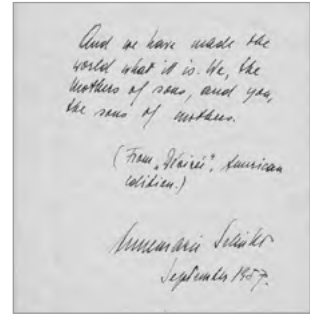 And we have made the
world what it is. We, the
mothers of sons, and you,
the sons of mothers.
(From „Désirée", American
edition.)
Annemarie Selinko
September 1957.